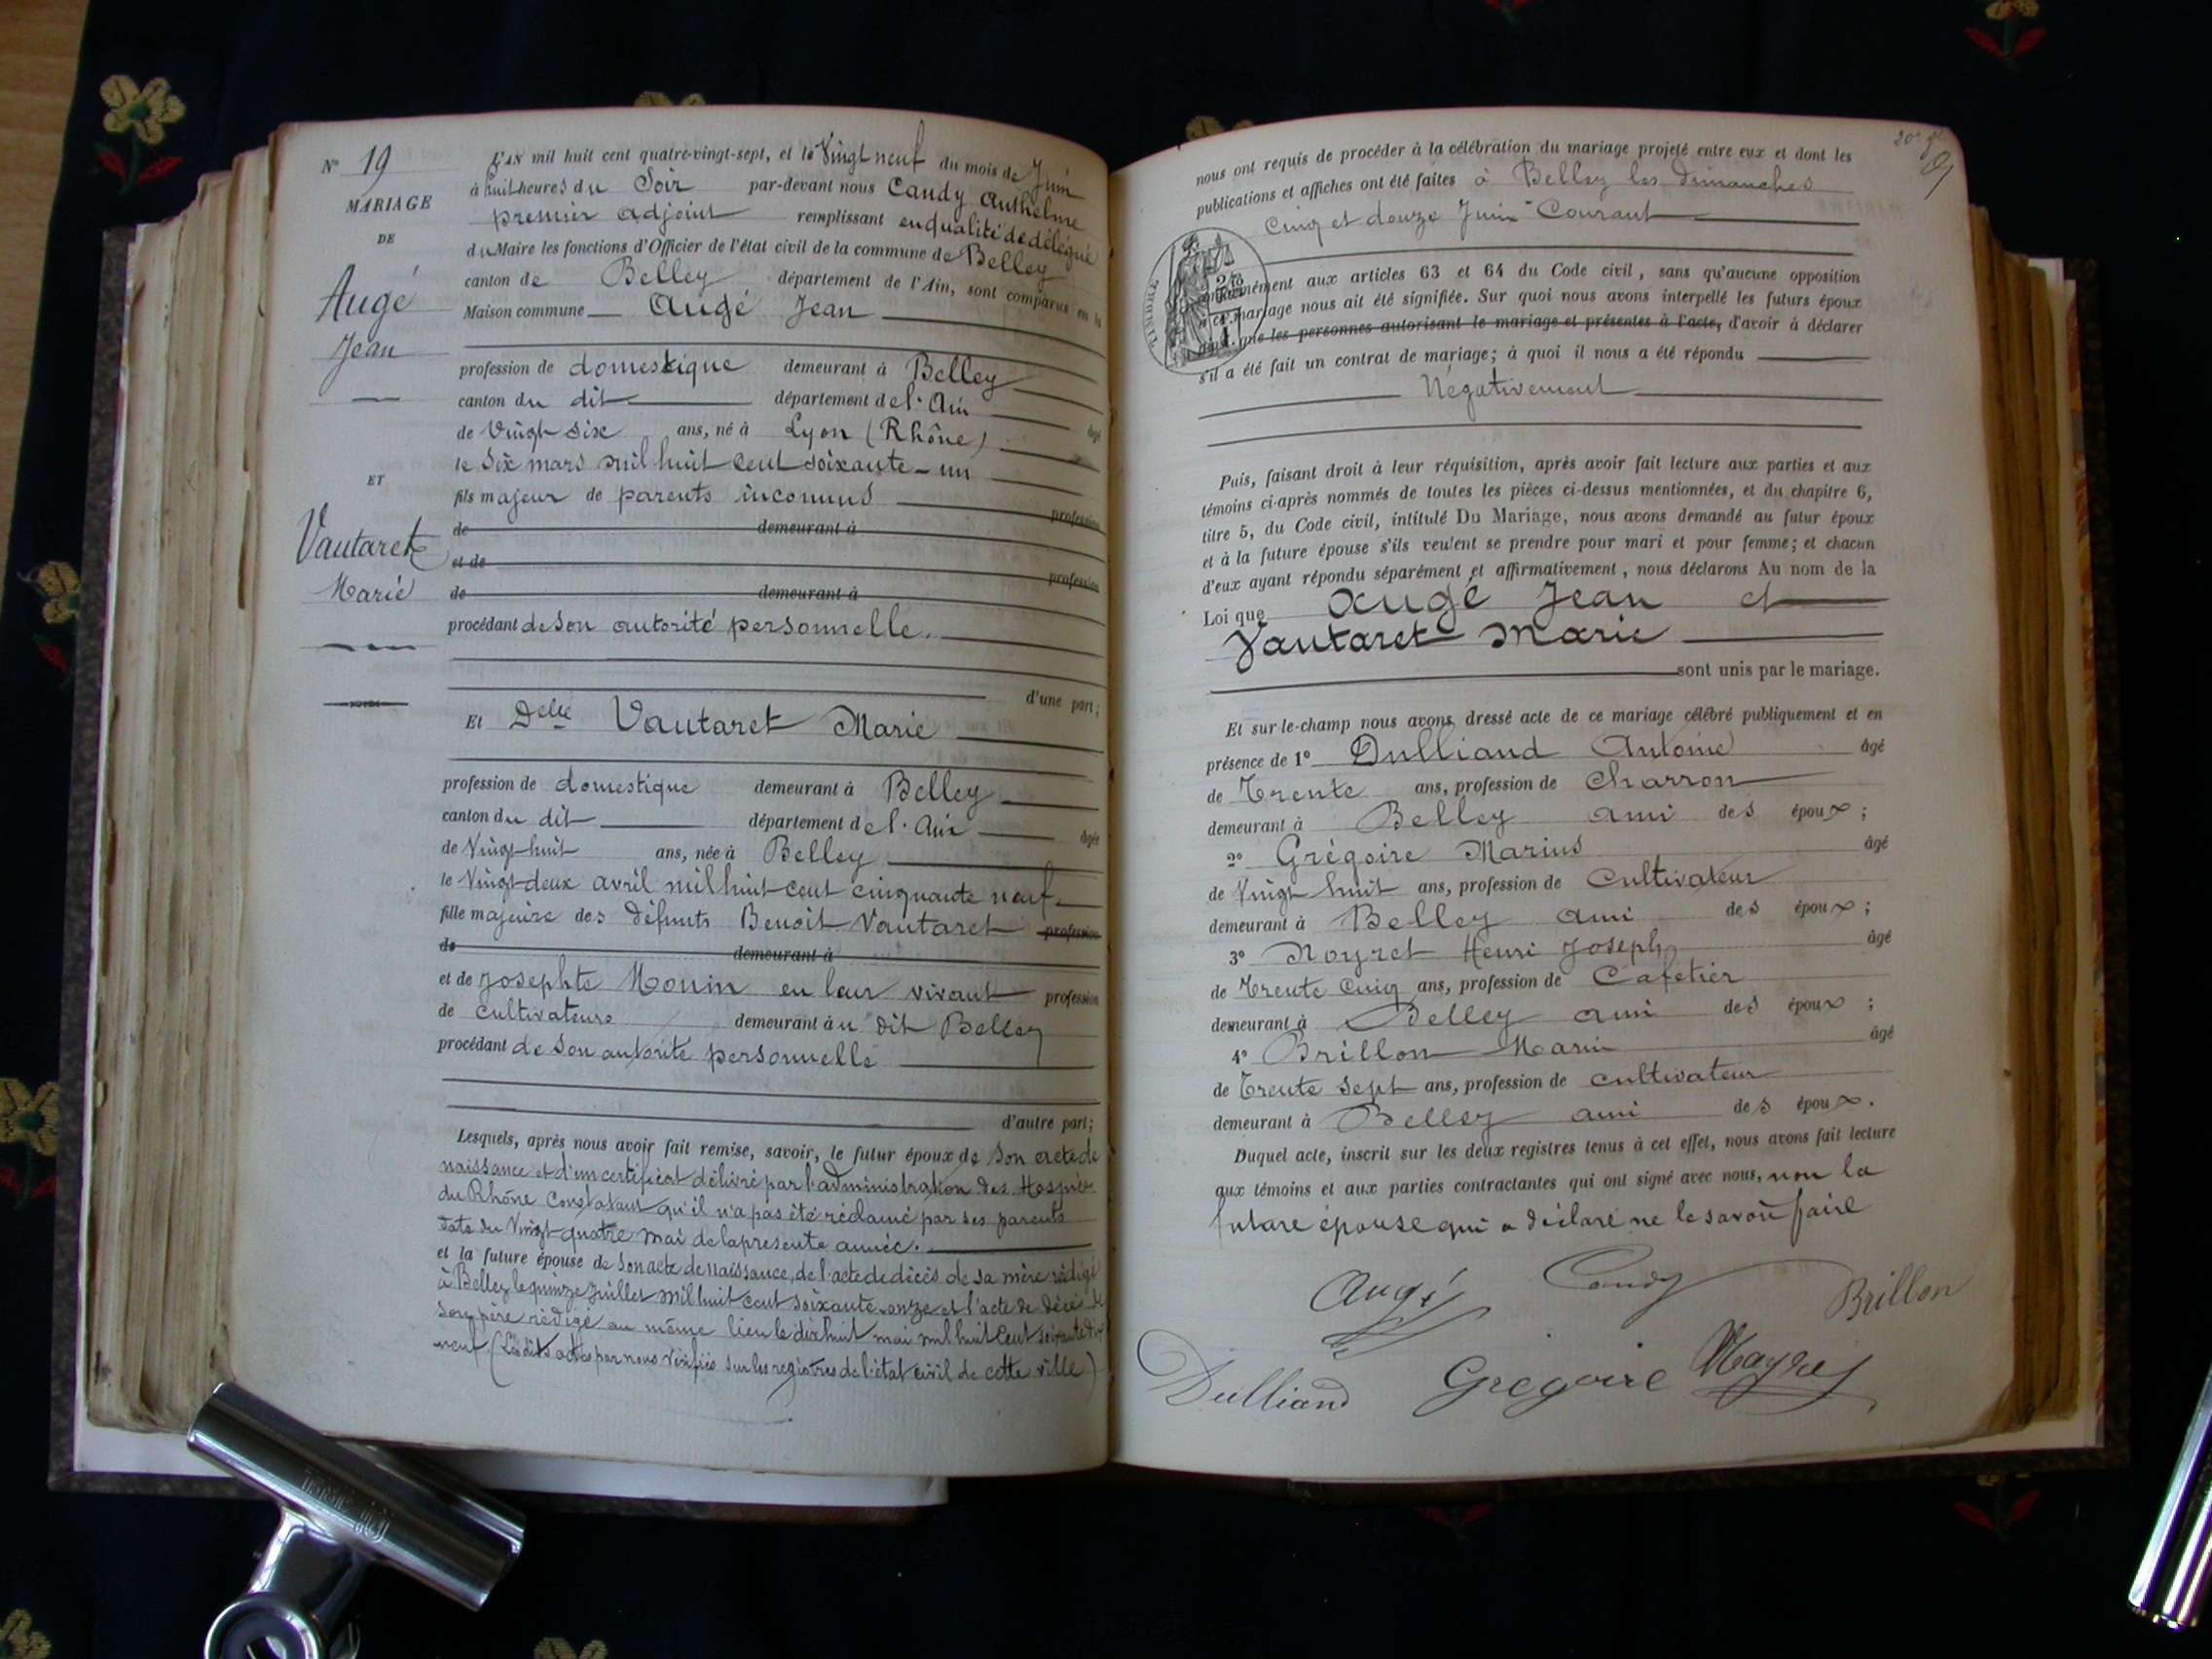 N° 19
MARIAGE
DE
Augé
Jean
ET
Vautaret
Marie
L'AN mil huit cent quatre-vingt-sept, et le Vingt neuf du mois de Juin
à huit heures du Soir par-devant nous Candy Anthelme
premier adjoint remplissant en qualité de délégué
du Maire les fonctions d'Officier de l'état civil de la commune de Belley
canton de Belley département de l'Ain, sont comparus en la
Maison commune Augé Jean
profession de domestique demeurant à Belley
canton du dit département de l'Ain âgé
de Vingt six ans, né à Lyon (Rhône)
le Six mars mil huit cent soixante-un
fils majeur de parents inconnus profession
de demeurant à
et de profession
de demeurant à
procédant de son autorité personnelle.
d'une part;
Et Delle Vautaret Marie
profession de domestique demeurant à Belley
canton du dit département de l'Ain âgée
de Vingt-huit ans, née à Belley
le Vingt-deux avril mil huit cent cinquante neuf
fille majeure des défunts Benoit Vautaret profession
de demeurant à
et de Josephte Monin en leur vivant profession
de cultivateurs demeurant au dit Belley
procédant de son autorité personnelle
d'autre part;
Lesquels, après nous avoir fait remise, savoir, le futur époux de son acte de
naissance et d'un certificat délivré par l'administration des Hospices
du Rhône Constatant qu'il n'a pas été réclamé par ses parents
date du Vingt-quatre mai de la présente année.
et la future épouse de son acte de naissance, de l'acte de décès de sa mère rédigé
à Belley le quinze Juillet mil huit cent soixante-onze et l'acte de décès de
son père rédigé au même lieu le dix huit mai mil huit cent soixante dix
neuf (Lesdits actes par nous vérifiés sur les registres de l'état civil de cette ville)
nous ont requis de procéder à la célébration du mariage projeté entre eux et dont les
publications et affiches ont été faites à Belley les dimanches
Cinq et douze Juin Courant
TIMBRE
conformément aux articles 63 et 64 du Code civil, sans qu'aucune opposition
à ce mariage nous ait été signifiée. Sur quoi nous avons interpellé les futurs époux
ainsi que les personnes autorisant le mariage et présentes à l'acte, d'avoir à déclarer
s'il a été fait un contrat de mariage; à quoi il nous a été répondu
Négativement
Puis, faisant droit à leur réquisition, après avoir fait lecture aux parties et aux
témoins ci-après nommés de toutes les pièces ci-dessus mentionnées, et du chapitre 6,
titre 5, du Code civil, intitulé Du Mariage, nous avons demandé au futur époux
et à la future épouse s'ils veulent se prendre pour mari et pour femme; et chacun
d'eux ayant répondu séparément et affirmativement, nous déclarons Au nom de la
Loi que Augé Jean et
Vautaret Marie
sont unis par le mariage.
Et sur-le-champ nous avons dressé acte de ce mariage célébré publiquement et en
présence de 1° Dulliand Antoine âgé
de Trente ans, profession de Charron
demeurant à Belley ami des époux;
2° Grégoire Marius âgé
de Vingt huit ans, profession de Cultivateur
demeurant à Belley ami des époux;
3° Nayret Henri Joseph âgé
de Trente Cinq ans, profession de Cafetier
demeurant à Belley ami des époux;
4° Brillon Marin âgé
de Trente sept ans, profession de cultivateur
demeurant à Belley ami des époux.
Duquel acte, inscrit sur les deux registres tenus à cet effet, nous avons fait lecture
aux témoins et aux parties contractantes qui ont signé avec nous, non la
future épouse qui a déclaré ne le savoir faire
Augé Candy Brillon
Dulliand Gregoire Nayret